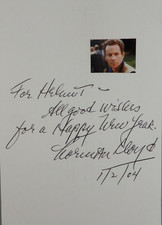 For Helmut -
All good wishes
for a Happy New Year.
Norman Lloyd
1/2/04